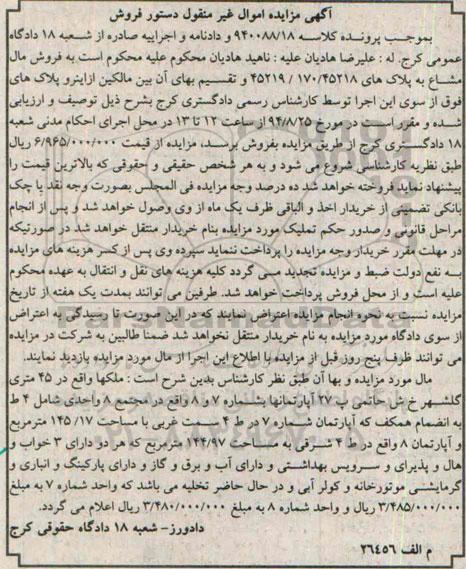 آگهی مزایده اموال غیر منقول دستور فروش
بموجب پرونده کلاسه ۹۴۰۰۸۸/۱۸ و دادنامه و اجراییه صادره از شعبه ۱۸ دادگاه
عمومی کرج. له : علیرضا هادیان علیه : ناهید هادیان محکوم علیه محکوم است به فروش مال
مشاع به پلاک های ۱۷۰/۴۵۲۱۸ / ۴۵۲۱۹ و تقسیم بهای آن بین مالکین ازاینرو پلاک های
فوق از سوی این اجرا توسط کارشناس رسمی دادگستری کرج بشرح ذیل توصیف و ارزیابی
شده و مقرر است در مورخ ۹۴/۸/۲۵ از ساعت ۱۲ تا ۱۳ در محل اجرای احکام مدنی شعبه
۱۸ دادگستری کرج از طریق مزایده بفروش برسد، مزایده از قیمت ۶/۹۶۵/۰۰۰/۰۰۰ ریال
طبق نظریه کارشناسی شروع می شود و به هر شخص حقیقی و حقوقی که بالاترین قیمت را
پیشنهاد نماید فروخته خواهد شد ده درصد وجه مزایده فی المجلس بصورت وجه نقد یا چک
بانکی تضمینی از خریدار اخذ و الباقی ظرف یک ماه از وی وصول خواهد شد و پس از انجام
مراحل قانونی و صدور حکم تملیک مورد مزایده بنام خریدار منتقل خواهد شد در صورتیکه
در مهلت مقرر خریدار وجه مزایده را پرداخت ننماید سپرده وی پس از کسر هزینه های مزایده
به نفع دولت ضبط و مزایده تجدید می گردد کلیه هزینه های نقل و انتقال به عهده محکوم
علیه است و از محل فروش پرداخت خواهد شد. طرفین می توانند بمدت یک هفته از تاریخ
مزایده نسبت به نحوه انجام مزایده اعتراض نمایند که در این صورت تا رسیدگی به اعتراض
از سوی دادگاه مورد مزایده به نام خریدار منتقل نخواهد شد ضمنا طالبین به شرکت در مزایده
می توانند ظرف پنج روز قبل از مزایده با اطلاع این اجرا از مال مورد مزایده بازدید نمایند.
مال مورد مزایده و بها آن طبق نظر کارشناس بدین شرح است : ملکها واقع در ۴۵ متری
گلشهر خ ش حاتمی پ ۲۷ آپارتمانها بشماره ۷ و ۸ واقع در مجتمع ۸ واحدی شامل ۴ ط
به انضمام همکف که آپارتمان شماره ۷ در ط ۴ سمت غربی با مساحت ۱۴۵/۱۷ مترمربع
و آپارتمان ۸ واقع در ط ۴ شرقی به مساحت ۱۴۴/۹۷ مترمربع که هر دو دارای ۳ خواب و
هال و پذیرای و سرویس بهداشتی و دارای آب و برق و گاز و دارای پارکینگ و انباری و
گرمایشی موتورخانه و کولر آبی و در حال حاضر تخلیه می باشد که واحد شماره ۷ به مبلغ
۳/۴۸۵/۰۰۰/۰۰۰ ریال و واحد شماره ۸ به مبلغ ۳/۴۸۰/۰۰۰/۰۰۰ ریال اعلام می گردد.
دادورز- شعبه ۱۸ دادگاه حقوقی کرج
م الف ۲۶۴۵۶